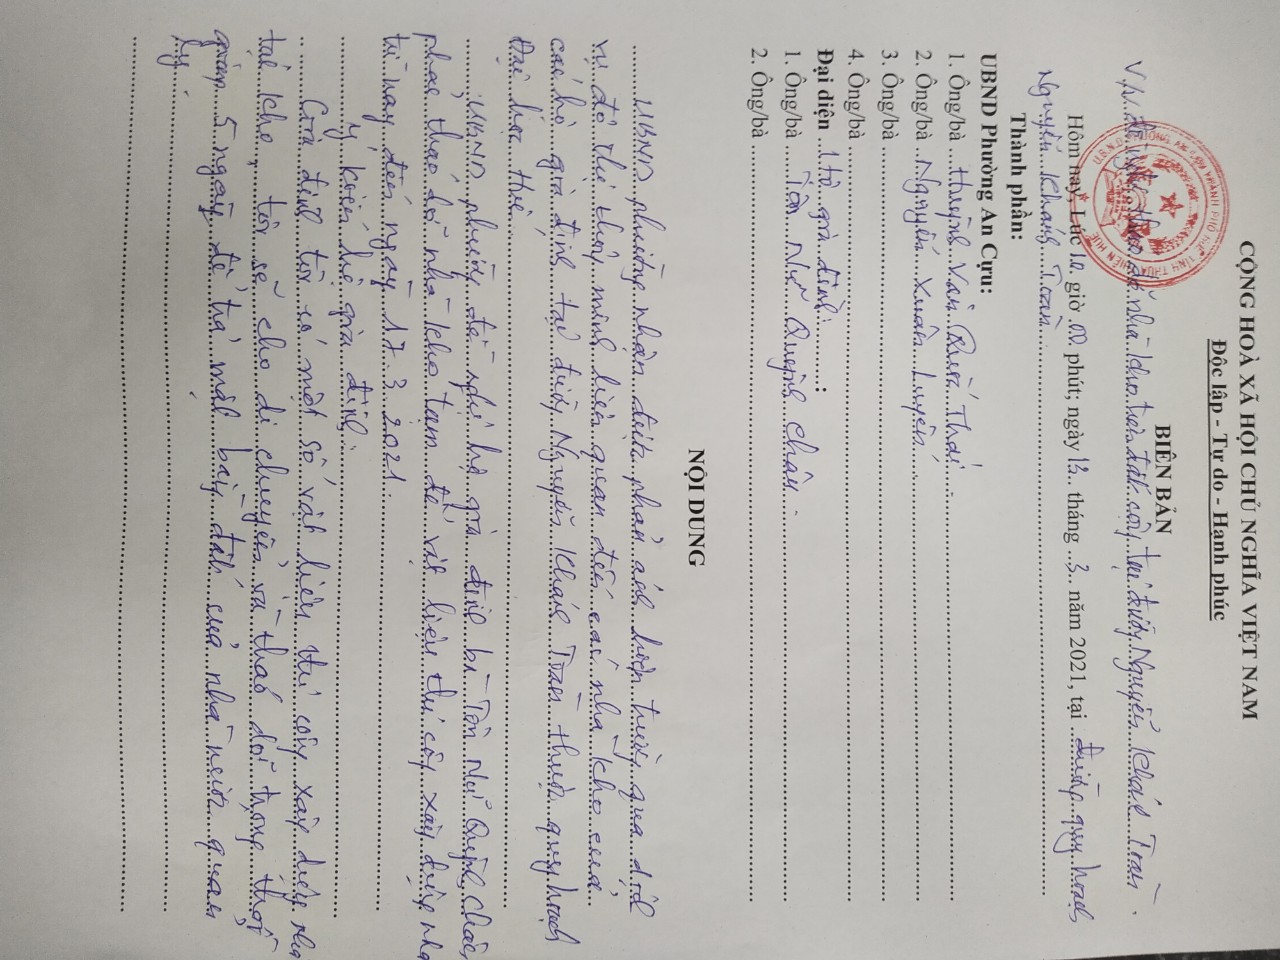 CỘNG HOÀ XÃ HỘI CHỦ NGHĨA VIỆT NAM
Độc lập - Tự do - Hạnh phúc
BIÊN BẢN
V/v đề nghị tháo dỡ nhà kho trên đất công tại đường Nguyễn Khánh Toàn.
Hôm nay, Lúc 10 giờ 00 phút; ngày 12 tháng 3 năm 2021, tại đường quy hoạch
Nguyễn Khánh Toàn
Thành phần:
UBND Phường An Cựu:
1. Ông/bà Huỳnh Văn Quốc Thái
2. Ông/bà Nguyễn Xuân Luyến
3. Ông/bà
4. Ông/bà
Đại diện hộ gia đình:
1. Ông/bà Tôn Nữ Quỳnh Châu
2. Ông/bà
NỘI DUNG
UBND phường nhận được phản ánh hiện trường qua dịch
vụ đô thị thông minh liên quan đến các nhà kho của
các hộ gia đình tại đường Nguyễn Khánh Toàn thuộc quy hoạch
Đại học Huế.
UBND phường đề nghị hộ gia đình bà Tôn Nữ Quỳnh Châu
phải tháo dỡ nhà kho tạm để vật liệu thi công xây dựng nhà
từ nay đến ngày 17.3.2021.
Ý kiến hộ gia đình:
Gia đình tôi có một số vật liệu thi công xây dựng nhà
tại kho, tôi sẽ cho di chuyển và tháo dỡ trong thời
gian 5 ngày để trả mặt bằng đất của nhà nước quản
lý.